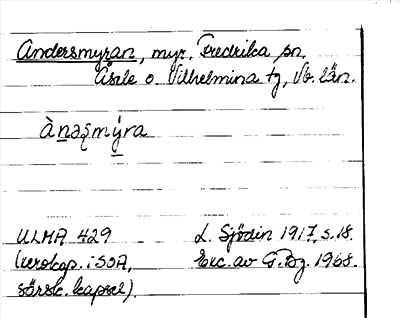 Andersmyran, myr. Fredrika sn,
Åsele o. Vilhelmina tg, Vb. län.
Ànəʂmýra
ULMA 429 L. Sjödin 1917, s. 18.
(xerokop. i SOA, Exc. av G. Bg. 1968.
särsk. kapsel).